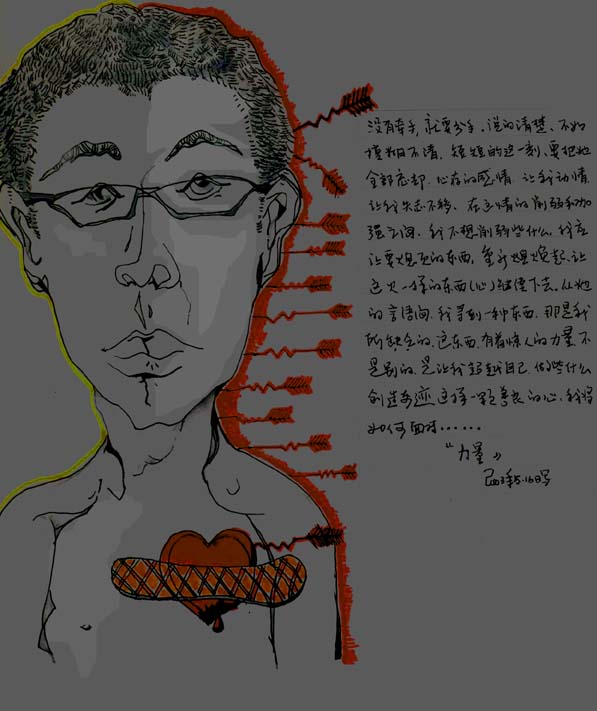 没有牵手，就要分手、说的清楚、不如
模糊不清．短短的这一刻、要把她
全部忘却．心存的感情．让我动情
让我失志不移、在立情的削弱和加
强之间、我不想削弱些什么．我应
让要熄灭的东西，重新燃烧起、让
这火一样的东西(心)继续下去。从她
的言语间．我寻到一种东西．那是我
所缺乏的．这东西．有着惊人的力量．不
是别的．是让我超越自己．做些什么
创造奇迹．这样一颗善良的心．我将
如何面对……
“力量》